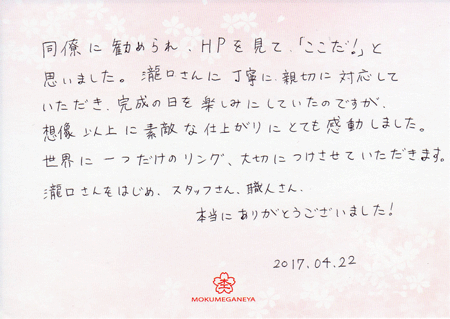 同僚に勧められ、HPを見て、「ここだ!」と
思いました。瀧口さんに丁寧に、親切に対応して
いただき、完成の日を楽しみにしていたのですが、
想像以上に素敵な仕上がりにとても感動しました。
世界に一つだけのリング、大切につけさせていただきます。
瀧口さんをはじめ、スタッフさん、職人さん、
本当にありがとうございました!
2017.04.22
MOKUMEGANEYA